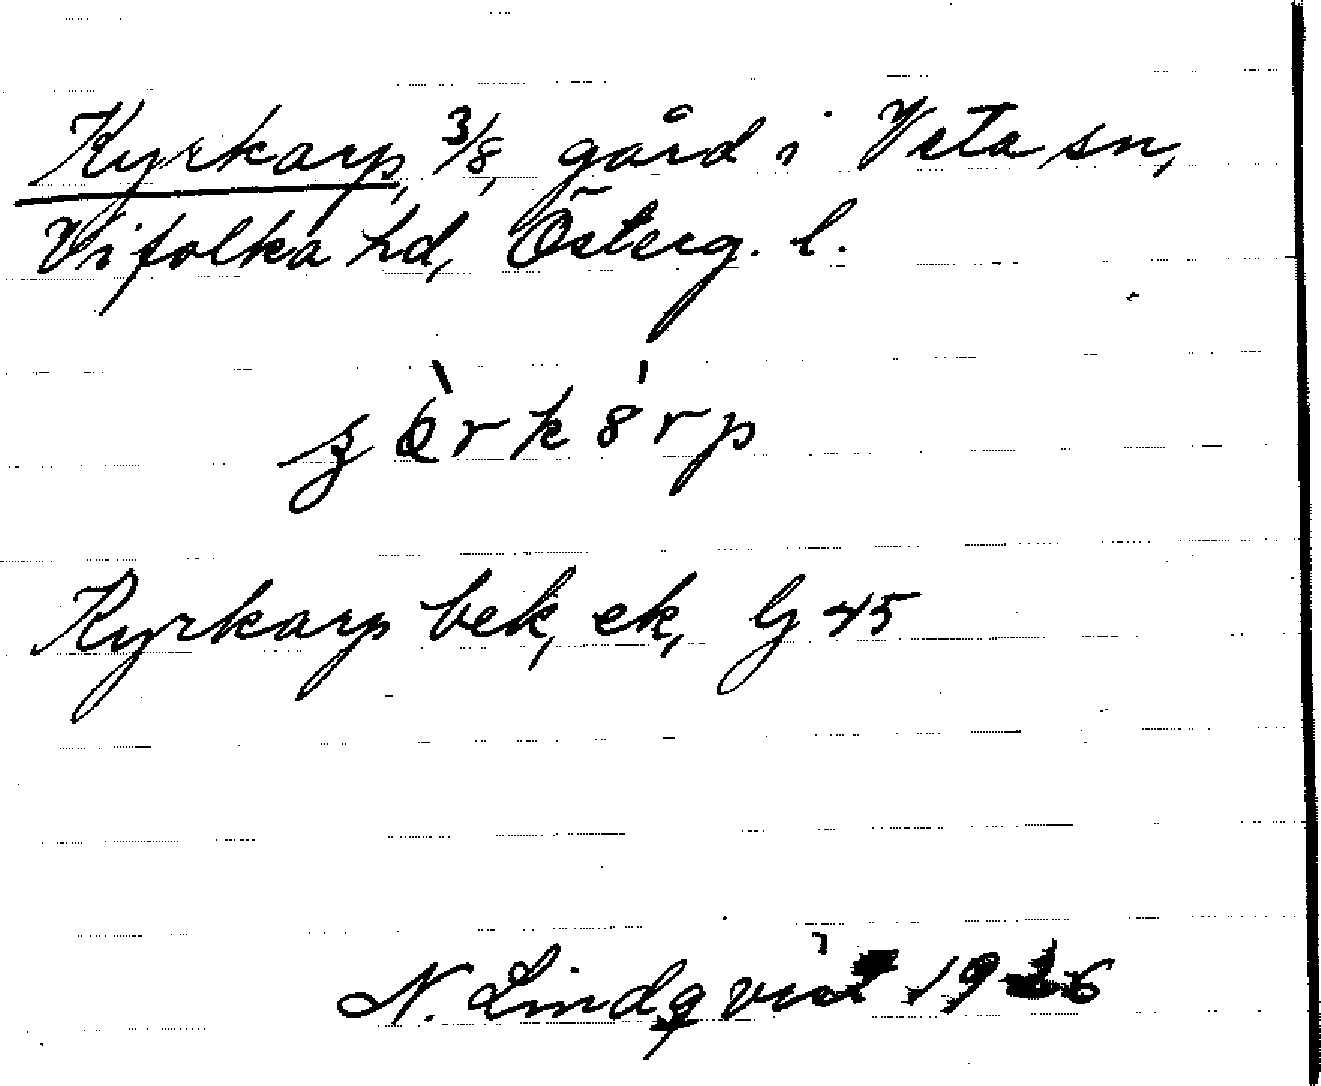 Kyrkarp, 3/8, gård i Veta sn,
Vifolka hd, Österg. l.
Kyrkarp bek, ek, G 45
N. Lindqvist 1926